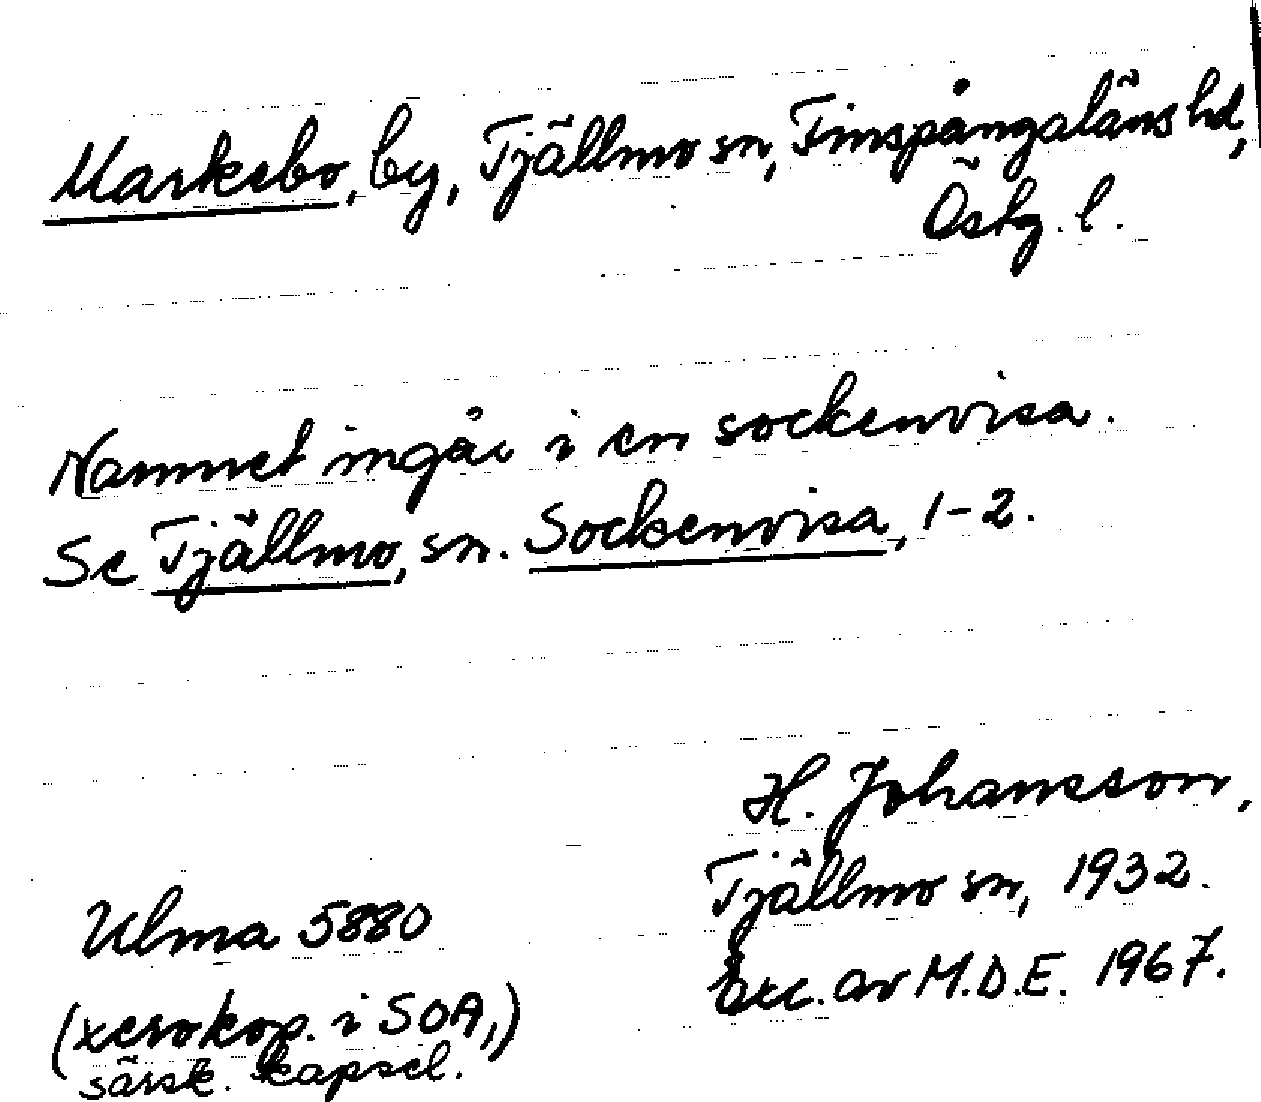 Markebo, by, Tjällmo sn, Finspångaläns hd,
Östg. l.
Namnet ingår i en sockenvisa.
Se Tjällmo, sn. Sockenvisa, 1-2.
H. Johansson,
Tjällmo sn, 1932.
Ulma 5880
Exc. av M.D.E. 1967.
(xerokop. i SOA,)
särsk. kapsel.